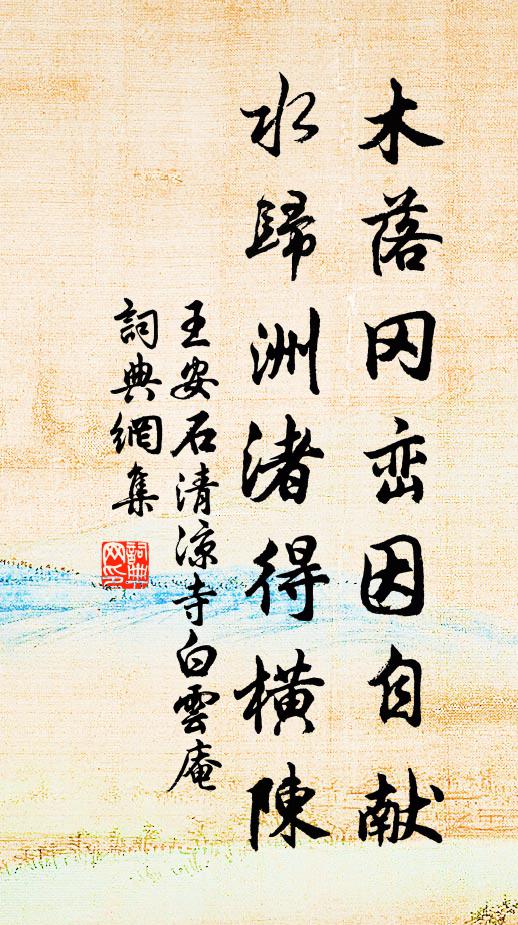 木落冈峦因自献
水歸洲渚得橫陳
王安石清涼寺白雲庵
詞典網集
詞典網印